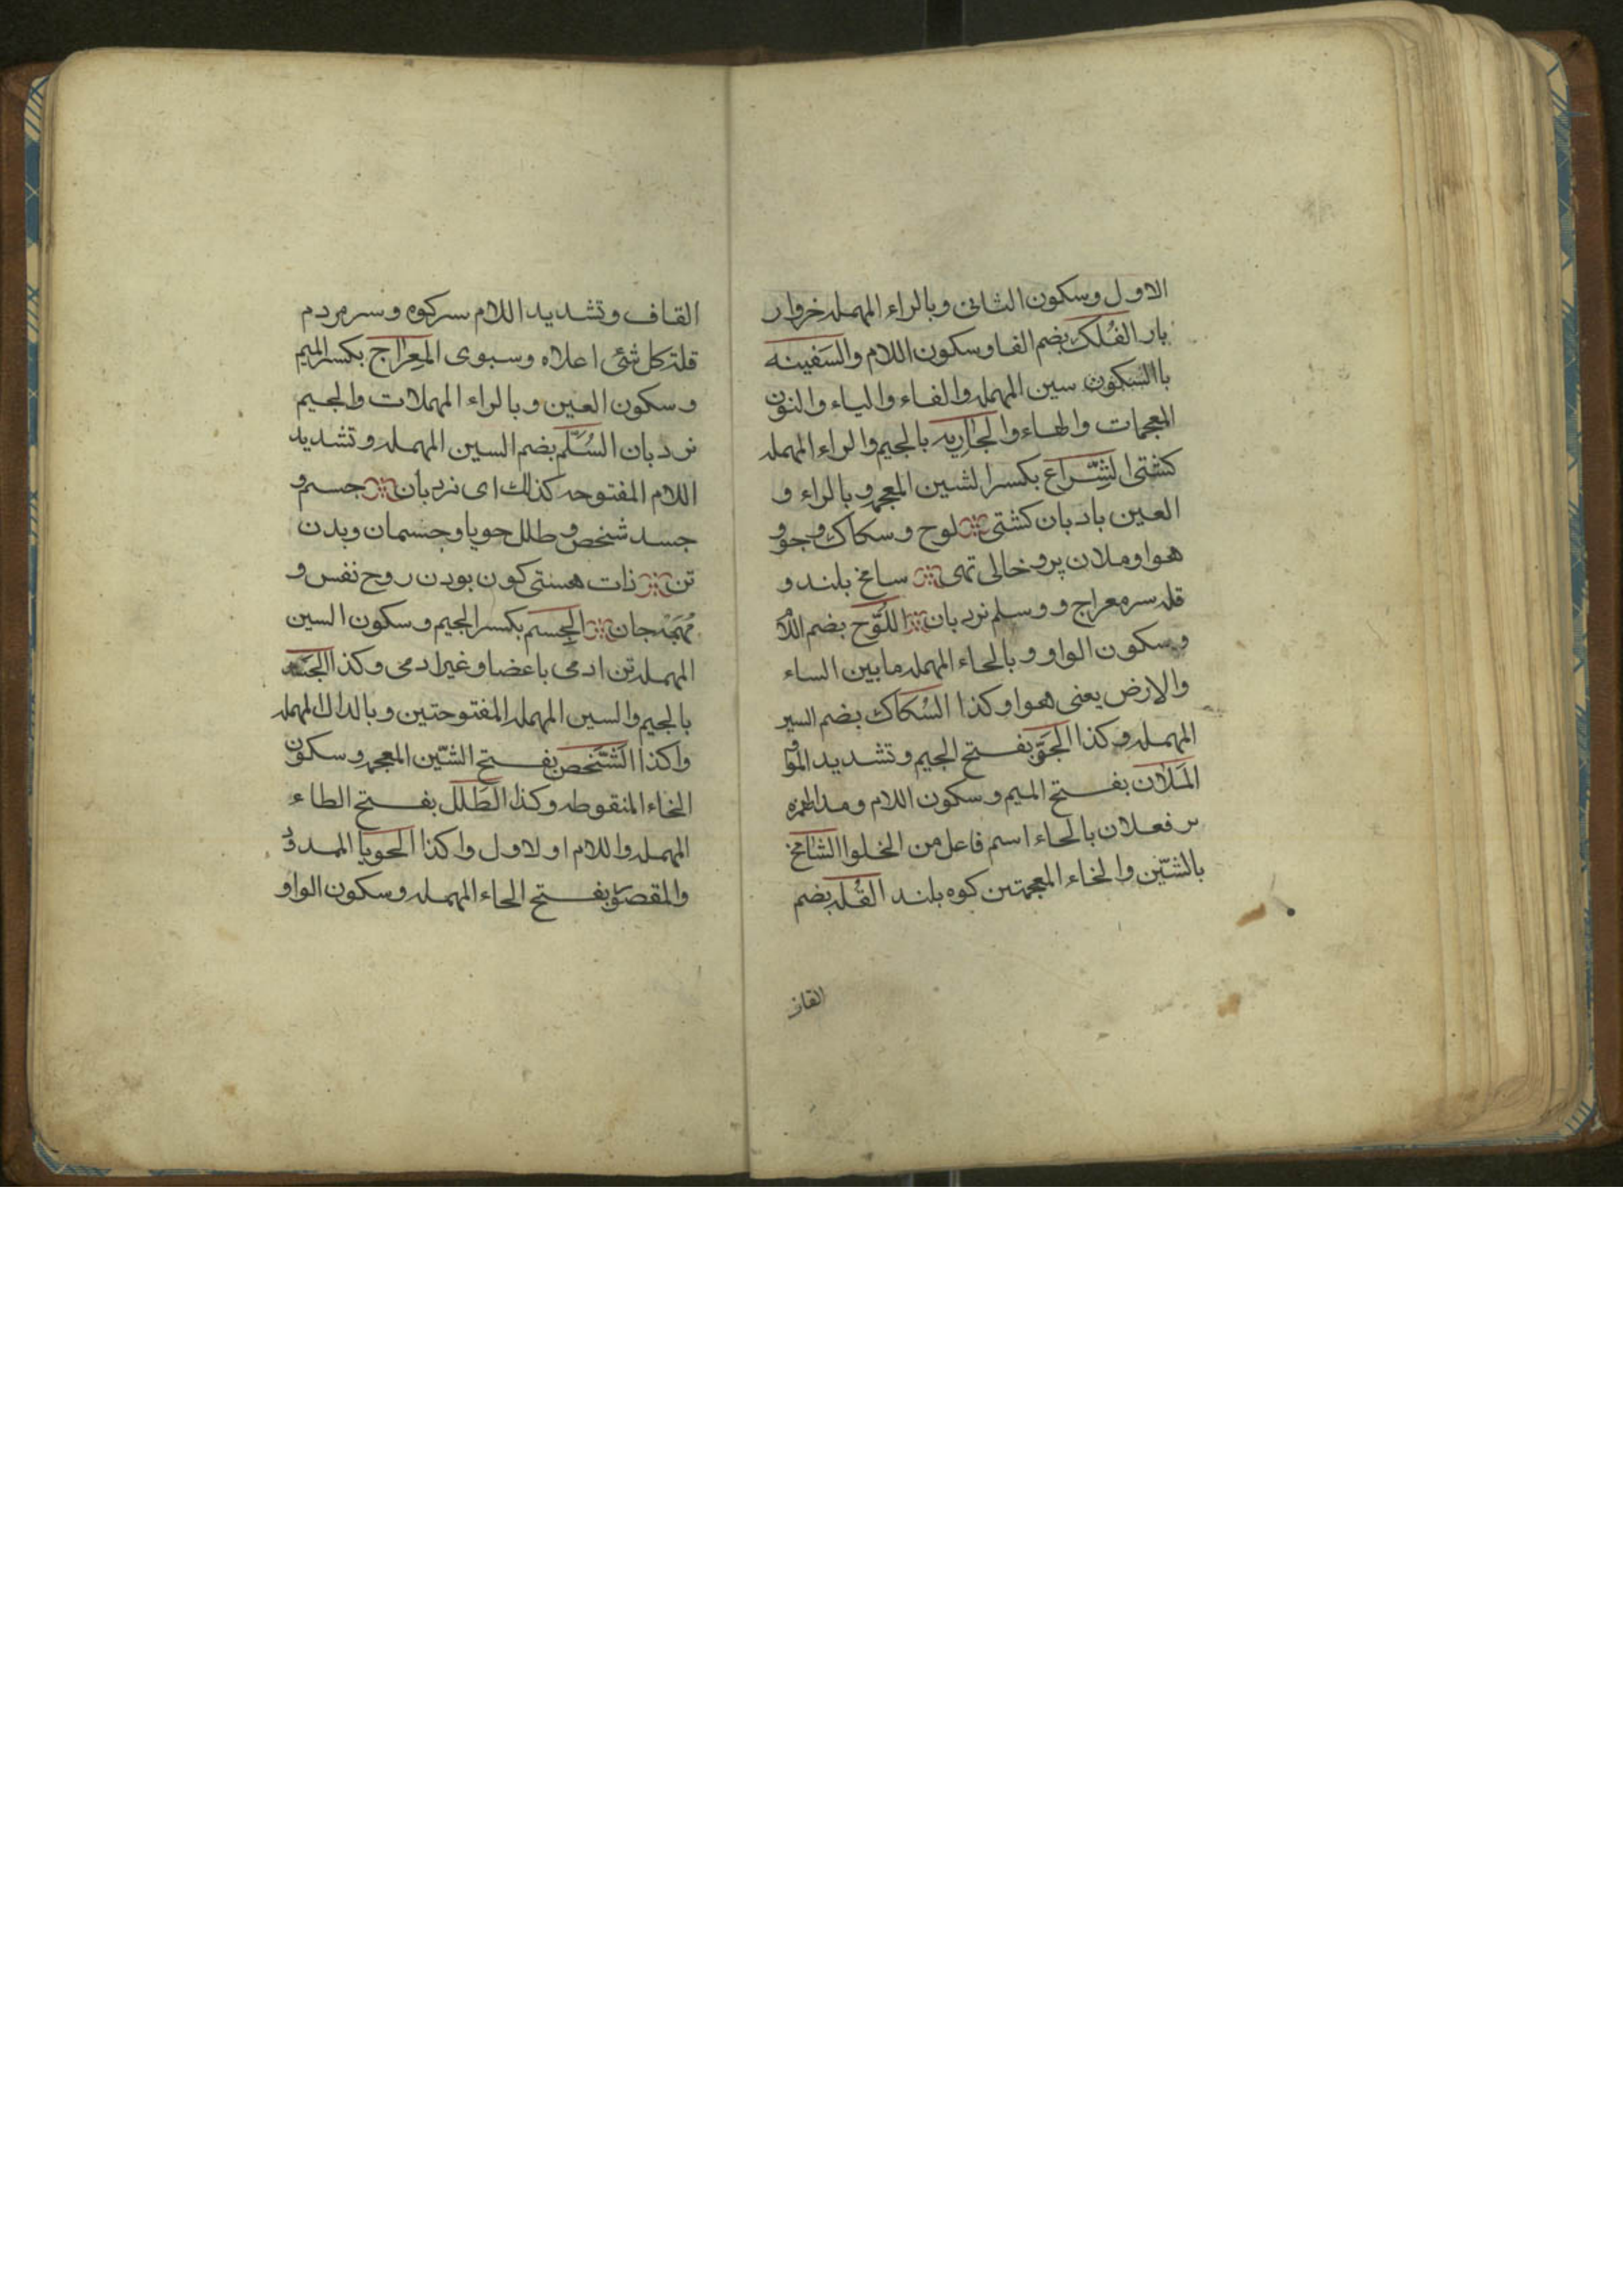 الاول وسكون الثانى وبالراء المهمله خروار
بار الفُلك بضم الفا وسكون اللام والسَفينه
باالسكون سين المهمله والفاء والياء والنون
المعجمات والهاء والجاريه بالجيم والراء المهمله
كشتى الشِّراع بكسر الشين المعجمه وبالراء و
العين بادبان كشتى لوح وسكاك وجو و
هوا وملان پر وخالى تهى سامخ بلند و
قله سر معراج و وسلم نردبان اللَّوح بضم اللام
وسكون الواو وبالحاء المهمله مابين الساء
والارض يعنى هوا وكذا السُكاك بضم السين
المهمله وكذا الجَوّ بفتح الجيم وتشديد الواو
المَلان بفتح الميم وسكون اللام ومد
بر فعلان بالحاء اسم فاعل من الخلوا الشامخ
بالشّين والخاء المعجمتين كوه بلند القُله بضم
القاف
القاف وتشديد اللام سر كوه وسر مردم
قلة كل شئ اعلاه وسبوى المِعراج بكسر الميم
وسكون العين وبالراء المهملات والجيم
نردبان السُلَّم بضم السين المهمله وتشديد
اللام المفتوحه كذلك اى نردبان جسم و
جسد شخص و طلل حوبا وجسمان وبدن
تن ذات هستى كون بودن روح نفس و
مُهجَه جان الجِسم بكسر الجيم وسكون السين
المهمله تن ادمى باعضا وغير ادمى وكذا الجسد
بالجيم والسين المهمله المفتوحتين وبالدال المهمله
واكذا الشَّخص بفتح الشّين المعجمه وسكون
الخاء المنقوطه وكذا الطَلَل بفتح الطاء
المهمله واللام اولاول واكذا الحوبا
والمقصور بفتح الحاء المهمله وسكون الواو